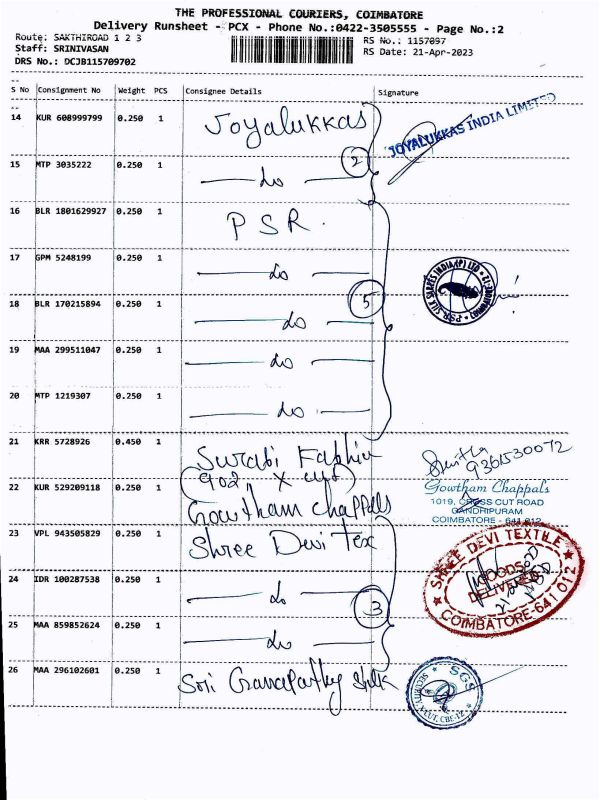 THE PROFESSIONAL COURIERS, COIMBATORE
Delivery Runsheet - PCX - Phone No.:0422-3505555 - Page No.:2
Route: SAKTHIROAD 1 2 3
RS No.: 1157097
Staff: SRINIVASAN
RS Date: 21-Apr-2023
DRS No.: DCJB115709702
S No Consignment No Weight PCS Consignee Details Signature
14 KUR 608999799 0.250 1 Joyalukkas
JOYALUKKAS INDIA LIMITED
15 MTP 3035222 0.250 1 do
2
16 BLR 1801629927 0.250 1 PSR.
17 GPM 5248199 0.250 1 do
PSR SILK SAREES INDIA (P) LTD
18 BLR 170215894 0.250 1 do
5
19 MAA 299511047 0.250 1 do
20 MTP 1219307 0.250 1 do
21 KRR 5728926 0.450 1 Surabi
(902 X cut)
22 KUR 529209118 0.250 1 Gowtham Chappals
Gowtham Chappals
1019, CROSS CUT ROAD
GANDHIPURAM
COIMBATORE - 641 012
23 VPL 943505829 0.250 1 Shree Devi Tex
SHREE DEVI TEXTILE
GOODS
DELIVERED
COIMBATORE-641 012
24 IDR 100287538 0.250 1 do
3
25 MAA 859852624 0.250 1 do
26 MAA 296102601 0.250 1 Sri Ganapathy Silk
SGS